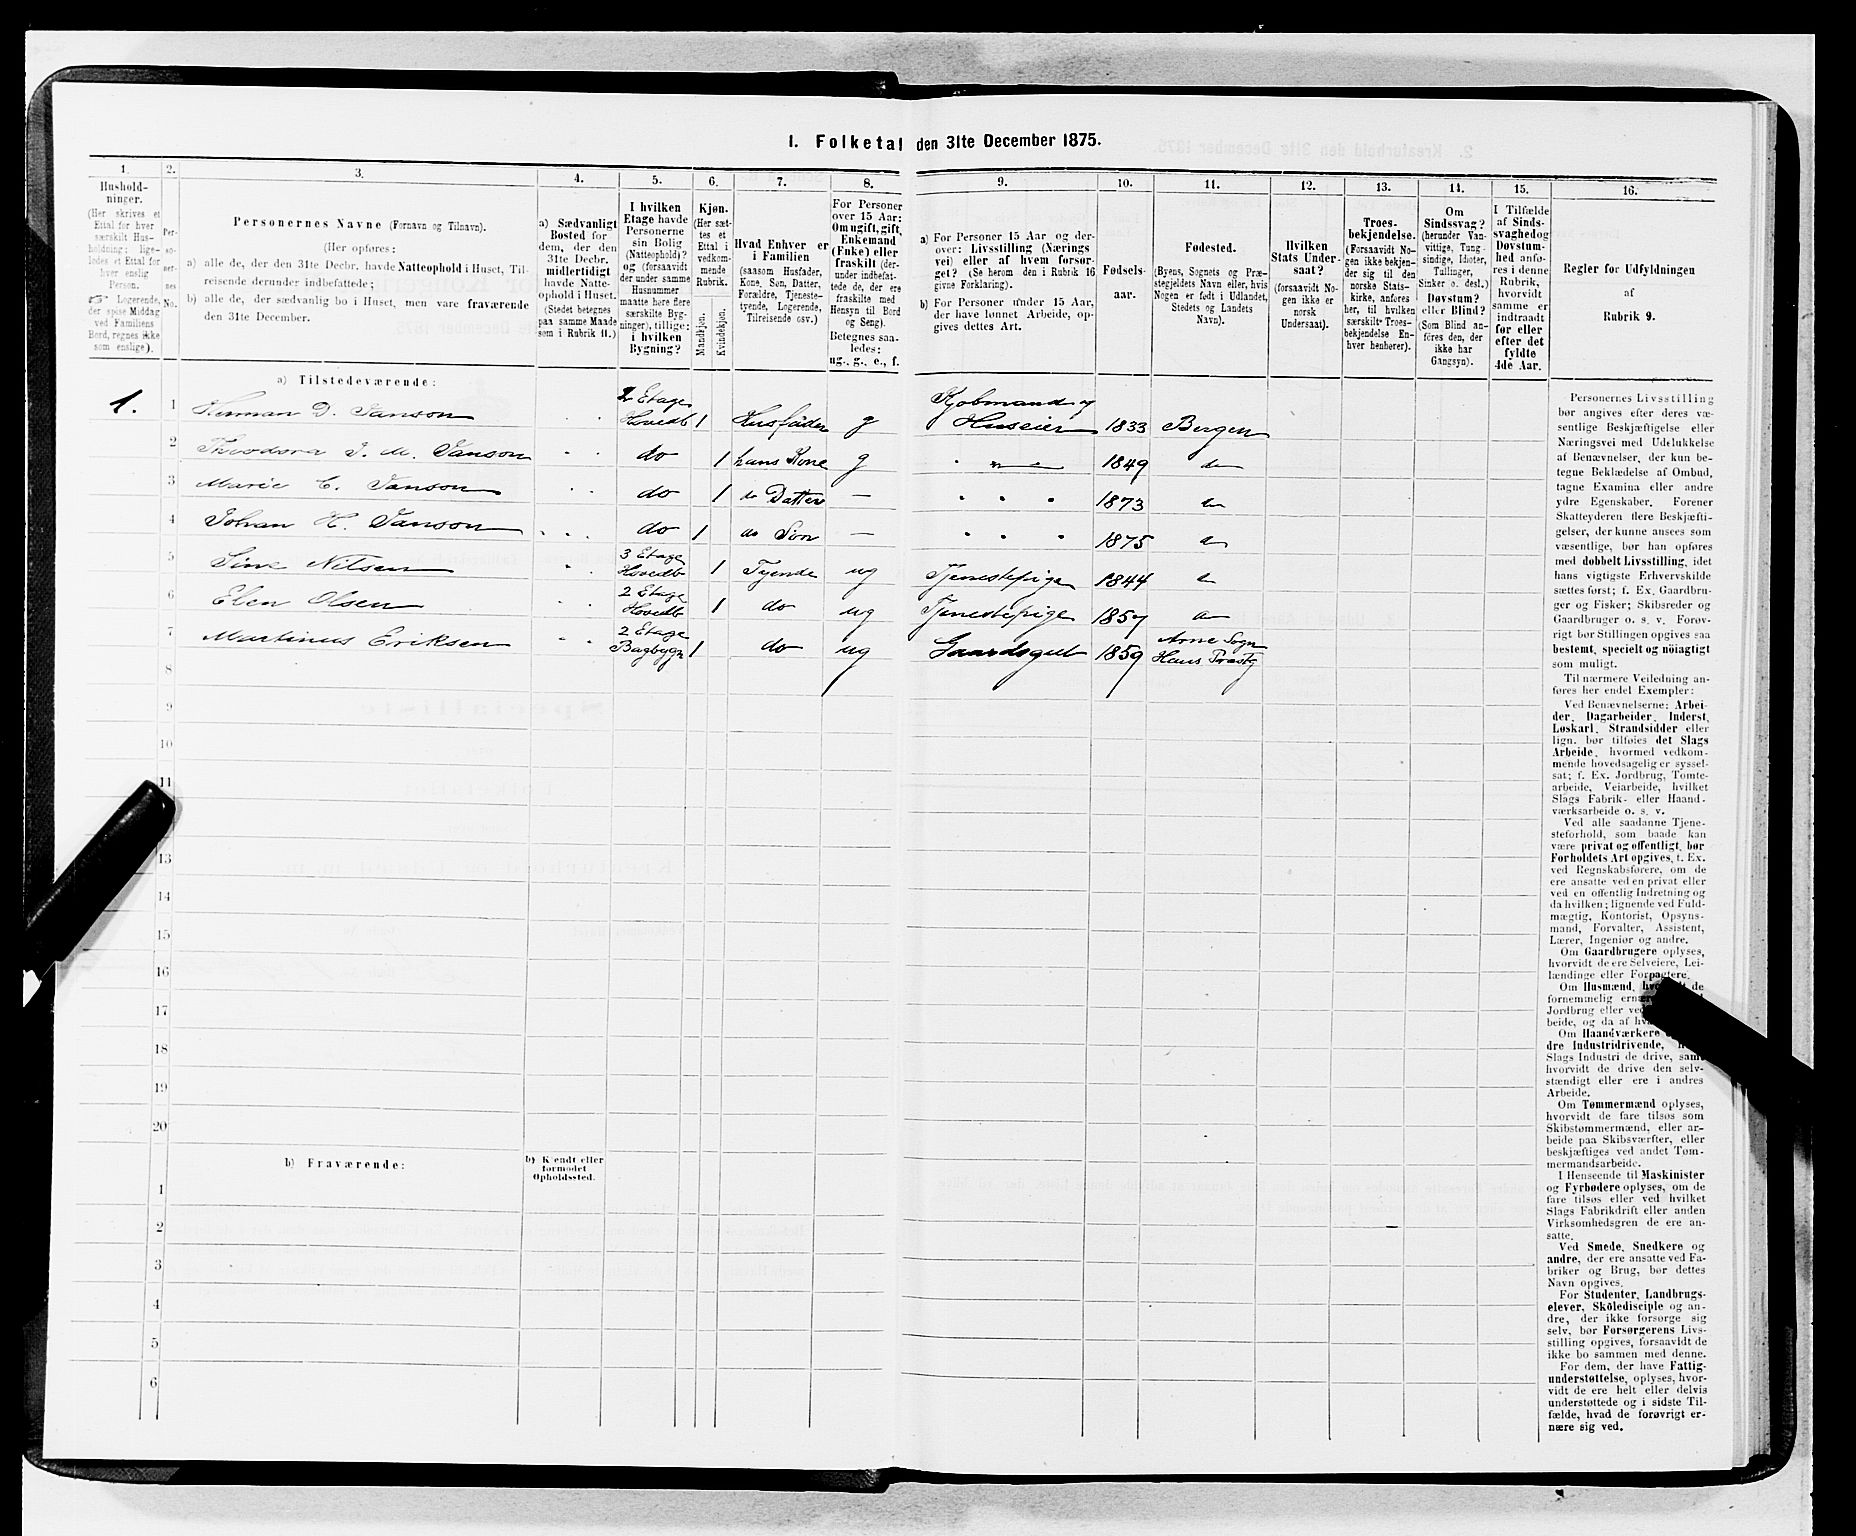 1. Folketal den 31te December 1875.
1.
Hushold-
ninger.
(Her skrives et
Ettal for hver
særskilt Hus-
holdning; lige-
ledes et Ettal for
hver enslig
Person.
Logerende,
der spise Middag
ved Familiens
Bord, regnes ikke
som enslige).
2.
Per-
so-
ner-
nes
No.
3.
Personernes Navne (Fornavn og Tilnavn).
(Her opføres:
a) alle de, der den 31te Decbr. havde Natteophold i Huset, Til-
reisende derunder indbefattede;
b) alle de, der sædvanlig bo i Huset, men vare fraværende
den 31te December.
4.
a) Sædvanligt
Bosted for
dem, der den
31te Decbr.
midlertidigt
havde Natte-
ophold i Huset.
(Stedet betegnes
paa samme Maade
som i Rubrik 11.)
5.
I hvilken
Etage havde
Personerne
sin Bolig
(Natteophold)?
og (forsaavidt
der under samme
Husnummer
maatte høre flere
særskilte Byg-
ninger), tillige:
i hvilken
Bygning?
6.
Kjøn.
(Her sæt-
tes et
Ettal i
vedkom-
mende
Rubrik.
Mandkjøn.
Kvindekjøn.
7.
Hvad Enhver er
i Familien
(saasom Husfader,
Kone, Søn, Datter,
Forældre, Tjeneste-
tyende, Logerende,
Tilreisende osv.)
8.
For Personer
over 15 Aar:
Om ugift, gift,
Enkemand
(Enke) eller
fraskilt (der-
under indbefat-
tede de, der ere
fraskilte med
Hensyn til Bord
og Seng).
Betegnes saa-
ledes:
ug., g., e., f.
9.
a) For Personer 15 Aar og der-
over: Livsstilling (Nærings
vei) eller af hvem forsør-
get? (Se herom den i Rubrik 16
givne Forklaring).
b) For Personer under 15 Aar,
der have lønnet Arbeide, op-
gives dettes Art.
10.
Fødsels-
aar.
11.
Fødested.
(Byens, Sognets og Præ-
stegjeldets Navn eller, hvis
Nogen er født i Udlandet,
Stedets og Landets
Navn).
12.
Hvilken
Stats Under-
saat?
(forsaavidt No-
gen ikke er
norsk
Undersaat).
13.
Troes-
bekjendelse.
(Forsaavidt No-
gen ikke bekjen-
der sig til den
norske Stats-
kirke, anføres
her, til hvilken
særskilt Troes-
bekjendelse En-
hver henhører).
14.
Om
Sindssvag?
(herunder Van-
vittige, Tung-
sindige, Idioter,
Tullinger,
Sinker o. desl.)
Døvstum?
eller Blind?
(Som Blind an-
føres den, der
ikke har
Gangsyn).
15.
I Tilfælde
af Sinds-
svaghed og
Døvstum-
hed anfø-
res i denne
Rubrik,
hvorvidt
samme er
indtraadt
før eller
efter det
fyldte
4de Aar.
16.
Regler for Udfyldningen
af
Rubrik 9.
a) Tilstedeværende:
1. 1 Herman D. Janson 2 Etage Hovedb 1 Husfader g Kjøbmand og Huseier 1833 Bergen
2 Theodora J. M. Janson do 1 hans Kone g 1849
3 Marie C. Janson do 1 Datter — 1873
4 Johan H. Janson do 1 do Søn — 1875
5 Sine Nilsen 3 Etage Hovedb 1 Tyende ug Tjenestepige 1844
6 Elen Olsen 2 Etage Hovedb 1 do ug Tjenestepige 1857
7 Martinus Eriksen 2 Etage Bagbygn 1 do ug Gaardsgut 1859 Arne Sogn Haus Præstg
8
9
10
11
13
14
15
16
17
18
19
20
b) Fraværende:
b) Kjendt eller
formodet
Opholdssted.
1
2
3
4
5
6
Personernes Livsstilling
bør angives efter deres væ-
sentlige Beskjæftigelse eller
Næringsvei med Udelukkelse
af Benævnelser, der kun be-
tegne Beklædelse af Ombud,
tagne Examina eller andre
ydre Egenskaber. Forener
Skatteyderen flere Beskjæfti-
gelser, der kunne ansees som
væsentlige, bør han opføres
med dobbelt Livsstilling, idet
hans vigtigste Erhvervskilde
sættes først; f. Ex. Gaardbru-
ger og Fisker; Skibsreder og
Gaardbruger o. s. v. Forøv-
rigt bør Stillingen opgives saa
bestemt, specielt og nöiagtigt
som muligt.
Til nærmere Veiledning an-
føres her endel Exempler:
Ved Benævnelserne: Arbei-
der, Dagarbeider, Inderst,
Løskarl, Strandsidder eller
lign. bør tilføies det Slags
Arbeide, hvormed vedkom-
mende hovedsagelig er syssel-
sat; f. Ex. Jordbrug, Tomte-
arbeide, Veiarbeide, hvilket
Slags Fabrik- eller Haand-
værksarbeide o. s. v.
Ved alle saadanne Tjene-
steforhold, som baade kan
være privat og offentligt, bør
Forholdets Art opgives, f. Ex.
ved Regnskabsførere, om de
ere ansatte ved en privat eller
ved en offentlig Indretning og
da hvilken; lignende ved Fuld-
mægtig, Kontorist, Opsyns-
mand, Forvalter, Assistent,
Lærer, Ingeniør og andre.
Om Gaardbrugere oplyses,
hvorvidt de ere Selveiere, Lei-
lændinge eller Forpagtere.
Om Husmænd, de
fornemmelig
Jordbrug eller
beide, og da af
Om Haandværkere
dre Industridrivende,
Slags Industri de drive, samt
hvorvidt de drive den selv-
stændigt eller ere i andres
Arbeide.
Om Tømmermænd oplyses,
hvorvidt de fare tilsøs som
Skibstømmermænd, eller ar-
beide paa Skibsværfter, eller
beskjæftiges ved andet Tøm-
mermandsarbeide.
I Henseende til Maskinister
og Fyrbødere oplyses, om de
fare tilsøs eller ved hvilket
Slags Fabrikdrift eller anden
Virksomhedsgren de ere an-
satte.
Ved Smede, Snedkere og
andre, der ere ansatte ved Fa-
briker og Brug, bør dettes
Navn opgives.
For Studenter, Landbrugs-
elever, Skoledisciple og an-
dre, der ikke forsørge sig
selv, bør Forsørgerens Livs-
stilling opgives, forsaavidt de
ikke bo sammen med denne.
For dem, der have Fattig-
understøttelse, oplyses, hvor-
vidt de ere helt eller delvis
understøttede og i sidste Til-
fælde, hvad de forøvrigt er-
nære sig ved.